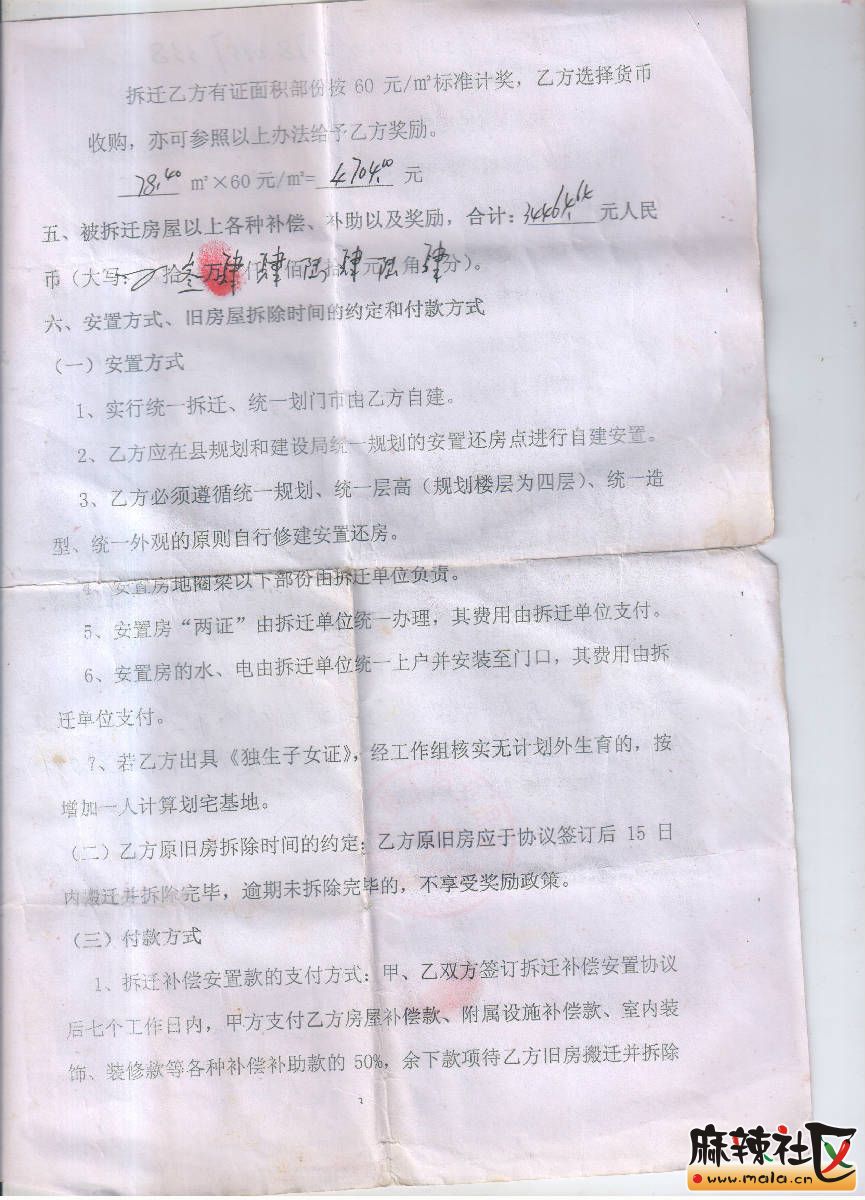 拆迁乙方有证面积部份按 60 元/㎡标准计奖，乙方选择货币
收购，亦可参照以上办法给予乙方奖励。
78.40 ㎡×60 元/㎡= 4704.00 元
五、被拆迁房屋以上各种补偿、补助以及奖励，合计：34464.64 元人民
币（大写： 拾叁万肆仟肆佰陆拾肆元陆角肆分）。
六、安置方式、旧房屋拆除时间的约定和付款方式
（一）安置方式
1、实行统一拆迁、统一划门市由乙方自建。
2、乙方应在县规划和建设局统一规划的安置还房点进行自建安置。
3、乙方必须遵循统一规划、统一层高（规划楼层为四层）、统一造
型、统一外观的原则自行修建安置还房。
4、安置房地圈梁以下部份由拆迁单位负责。
5、安置房“两证”由拆迁单位统一办理，其费用由拆迁单位支付。
6、安置房的水、电由拆迁单位统一上户并安装至门口，其费用由拆
迁单位支付。
7、若乙方出具《独生子女证》，经工作组核实无计划外生育的，按
增加一人计算划宅基地。
（二）乙方原旧房拆除时间的约定：乙方原旧房应于协议签订后 15 日
内搬迁并拆除完毕，逾期未拆除完毕的，不享受奖励政策。
（三）付款方式
1、拆迁补偿安置款的支付方式：甲、乙双方签订拆迁补偿安置协议
后七个工作日内，甲方支付乙方房屋补偿款、附属设施补偿款、室内装
饰、装修款等各种补偿补助款的 50%，余下款项待乙方旧房搬迁并拆除
麻辣社区
www.mala.cn